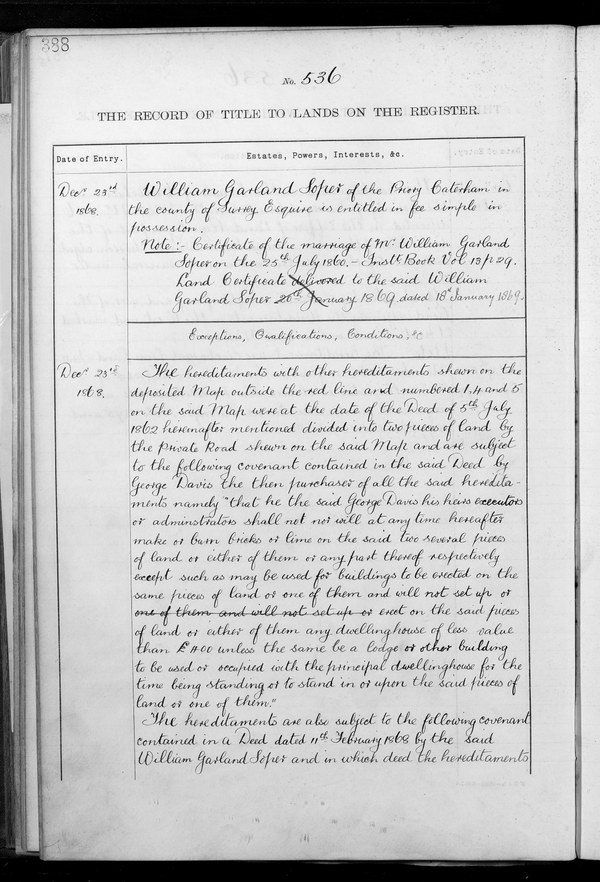 388
No. 536
THE RECORD OF TITLE TO LANDS ON THE REGISTER.
Date of Entry.
Estates, Powers, Interests, &c.
Decr. 23rd
1868.
William Garland Soper of the Priory Caterham in
the county of Surrey Esquire is entitled in fee simple in
possession.
Note:- Certificate of the marriage of Mr. William Garland
Soper on the 25th July 1860. - Inst. Book Vol 13 p 29.
Land Certificate delivered to the said William
Garland Soper 20th January 1869. dated 18th January 1869.
Exceptions, Qualifications, Conditions, &c
Decr. 23rd
1868.
The hereditaments with other hereditaments shewn on the
deposited Map outside the red line and numbered 1.4 and 5
on the said Map were at the date of the Deed of 5th July
1862 hereinafter mentioned divided into two pieces of land by
the Private Road shewn on the said Map and are subject
to the following covenant contained in the said Deed by
George Davis the then purchaser of all the said heredita-
ments namely "that he the said George Davis his heirs executors
or adminstrators shall not nor will at any time hereafter
make or burn bricks or lime on the said two several pieces
of land or either of them or any part thereof respectively
except such as may be used for buildings to be erected on the
same pieces of land or one of them and will not set up or
one of them and will not set up or erect on the said pieces
of land or either of them any dwellinghouse of less value
than £400 unless the same be a lodge or other building
to be used or occupied with the principal dwellinghouse for the
time being standing or to stand in or upon the said pieces of
land or one of them."
The hereditaments are also subject to the following covenant
contained in a Deed dated 11th February 1868 by the said
William Garland Soper and in which deed the hereditaments